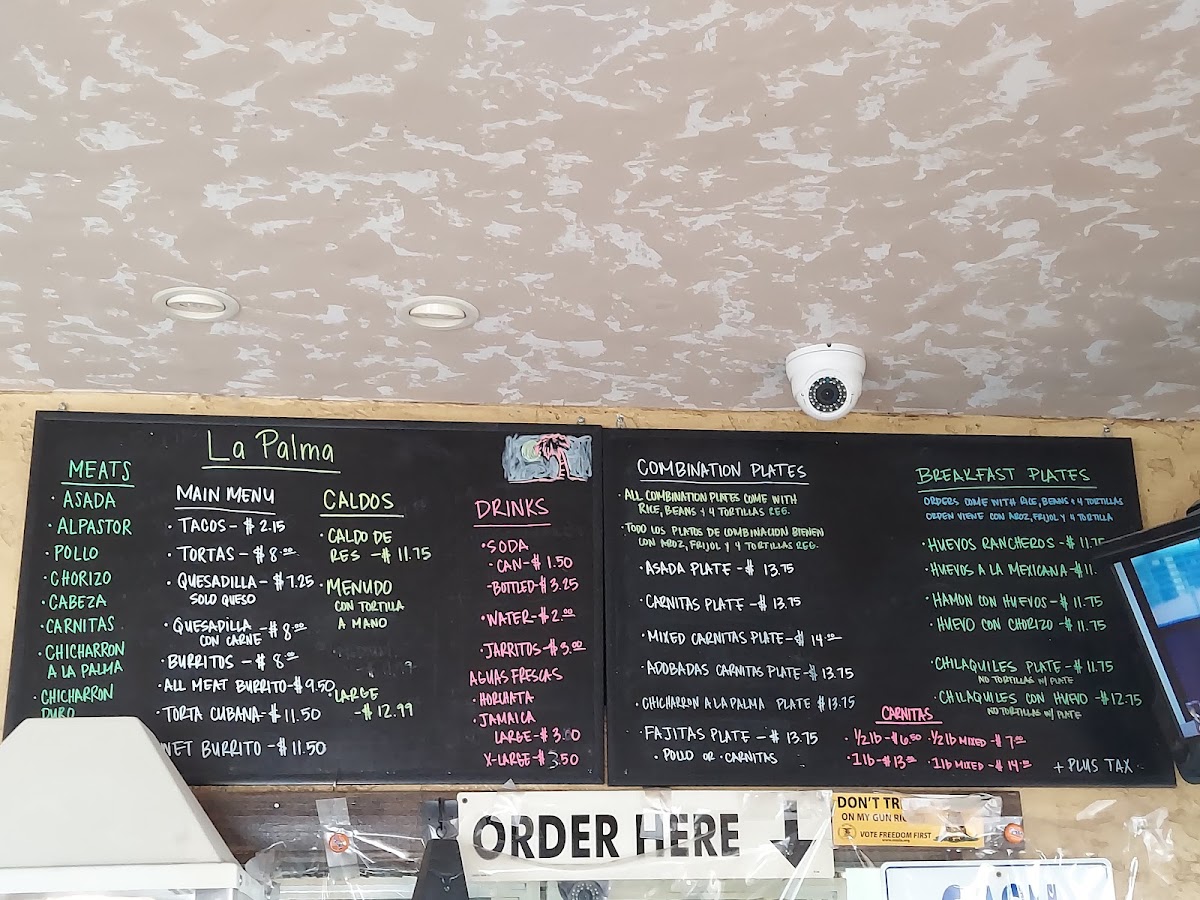 La Palma
MEATS
· ASADA
· ALPASTOR
· POLLO
· CHORIZO
· CABEZA
· CARNITAS
· CHICHARRON
A LA PALMA
· CHICHARRON
DURO
MAIN MENU
· TACOS - $ 2.15
· TORTAS - $ 8.00
· QUESADILLA - $ 7.25
SOLO QUESO
· QUESADILLA
CON CARNE - $ 8.00
· BURRITOS - $ 8.00
· ALL MEAT BURRITO - $ 9.50
· TORTA CUBANA - $ 11.50
WET BURRITO - $ 11.50
CALDOS
· CALDO DE
RES - $ 11.75
· MENUDO
CON TORTILLA
A MANO
LARGE
- $ 12.99
DRINKS
· SODA
· CAN - $ 1.50
- BOTTLED - $ 3.25
· WATER - $ 2.00
· JARRITOS - $ 3.00
AGUAS FRESCAS
· HORCHATA
· JAMAICA
LARGE - $ 3.00
X-LARGE - $ 3.50
COMBINATION PLATES
· ALL COMBINATION PLATES COME WITH
RICE, BEANS & 4 TORTILLAS REG.
· TODO LOS PLATOS DE COMBINACION BIENEN
CON AROZ, FRIJOL Y 4 TORTILLAS REG.
· ASADA PLATE - $ 13.75
· CARNITAS PLATE - $ 13.75
· MIXED CARNITAS PLATE - $ 14.00
· ADOBADAS CARNITAS PLATE - $ 13.75
· CHICHARRON A LA PALMA PLATE $ 13.75
· FAJITAS PLATE - $ 13.75
· POLLO OR · CARNITAS
BREAKFAST PLATES
ORDERS COME WITH RICE, BEANS & 4 TORTILLAS
ORDEN VIENE CON AROZ, FRIJOL Y 4 TORTILLA
· HUEVOS RANCHEROS - $ 11.75
· HUEVOS A LA MEXICANA - $ 11.
· HAMON CON HUEVOS - $ 11.75
· HUEVO CON CHORIZO - $ 11.75
· CHILAQUILES PLATE - $ 11.75
NO TORTILLAS W/ PLATE
· CHILAQUILES CON HUEVO - $ 12.75
NO TORTILLAS W/ PLATE
CARNITAS
· 1/2 lb - $ 6.50 · 1/2 lb MIXED - $ 7.00
· 1 lb - $ 13.00 · 1 lb MIXED - $ 14.00
+ PLUS TAX
ORDER HERE
DON'T TR
ON MY GUN RIG
VOTE FREEDOM FIRST